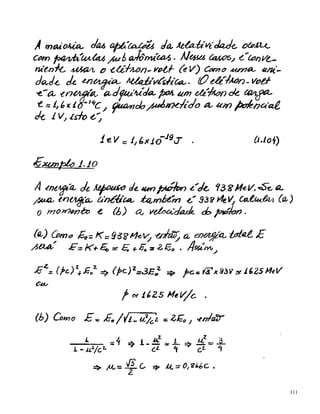 A maioria das aplicações da relatividade ocorre
com partículas subatômicas. Nesses casos, é conve-
niente usar o elétron-volt (eV) como uma uni-
dade de energia relativística. O elétron-volt
é a energia adquirida por um elétron de carga
e = 1,6x10⁻¹⁹C, quando submetido a um potencial
de 1V, isto é,
1eV = 1,6x10⁻¹⁹J . (1.101)
Exemplo 1.10
A energia de repouso de um próton é de 938 MeV. Se a
sua energia cinética também é 938 MeV, calcular (a)
o momento e (b) a velocidade do próton.
(a) Como E₀ = K = 938 MeV, então, a energia total E
será E = K + E₀ = E₀ + E₀ = 2E₀ . Assim,
E² = (pc)² + E₀² ⇒ (pc)² = 3E₀² ⇒ pc = √3 x 938 ≈ 1625 MeV
ou
p ≈ 1625 MeV/c .
(b) Como E = E₀/√1-u²/c² = 2E₀, então
1/(1-u²/c²) = 4 ⇒ 1 - u²/c² = 1/4 ⇒ u²/c² = 3/4
⇒ u = √3/2 c ⇒ u = 0,866c .
111